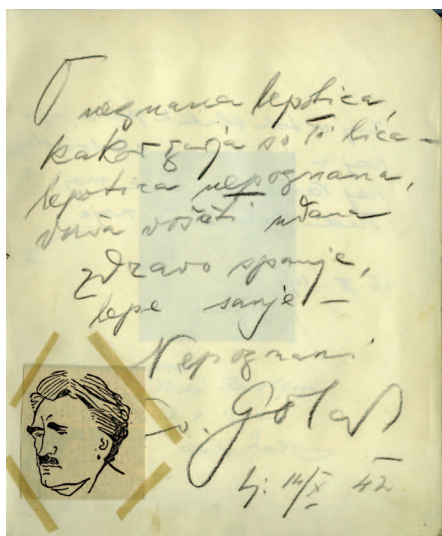 O neznana lepotica,
kakor zarja so Ti lica –
lepotica nepoznana,
vošči vdana
zdravo spanje,
lepe sanje –
Nepoznani
Golar
Lj. 14/X 42